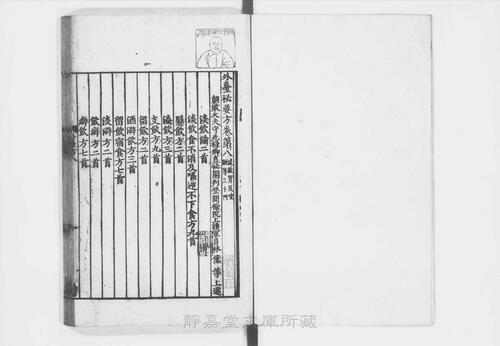 外臺祕要方卷第八
朝散大夫守光祿卿直祕閣判登聞檢院上護軍臣林億等上進
痰飲論二首
痰飲食不消及嘔逆不下食方九首
懸飲方二首
溢飲方三首
支飲方九首
留飲方二首
酒澼飲方三首
留飲宿食方七首
痰澼方二首
飲澼方二首
癖飲方七首
靜嘉堂文庫所藏